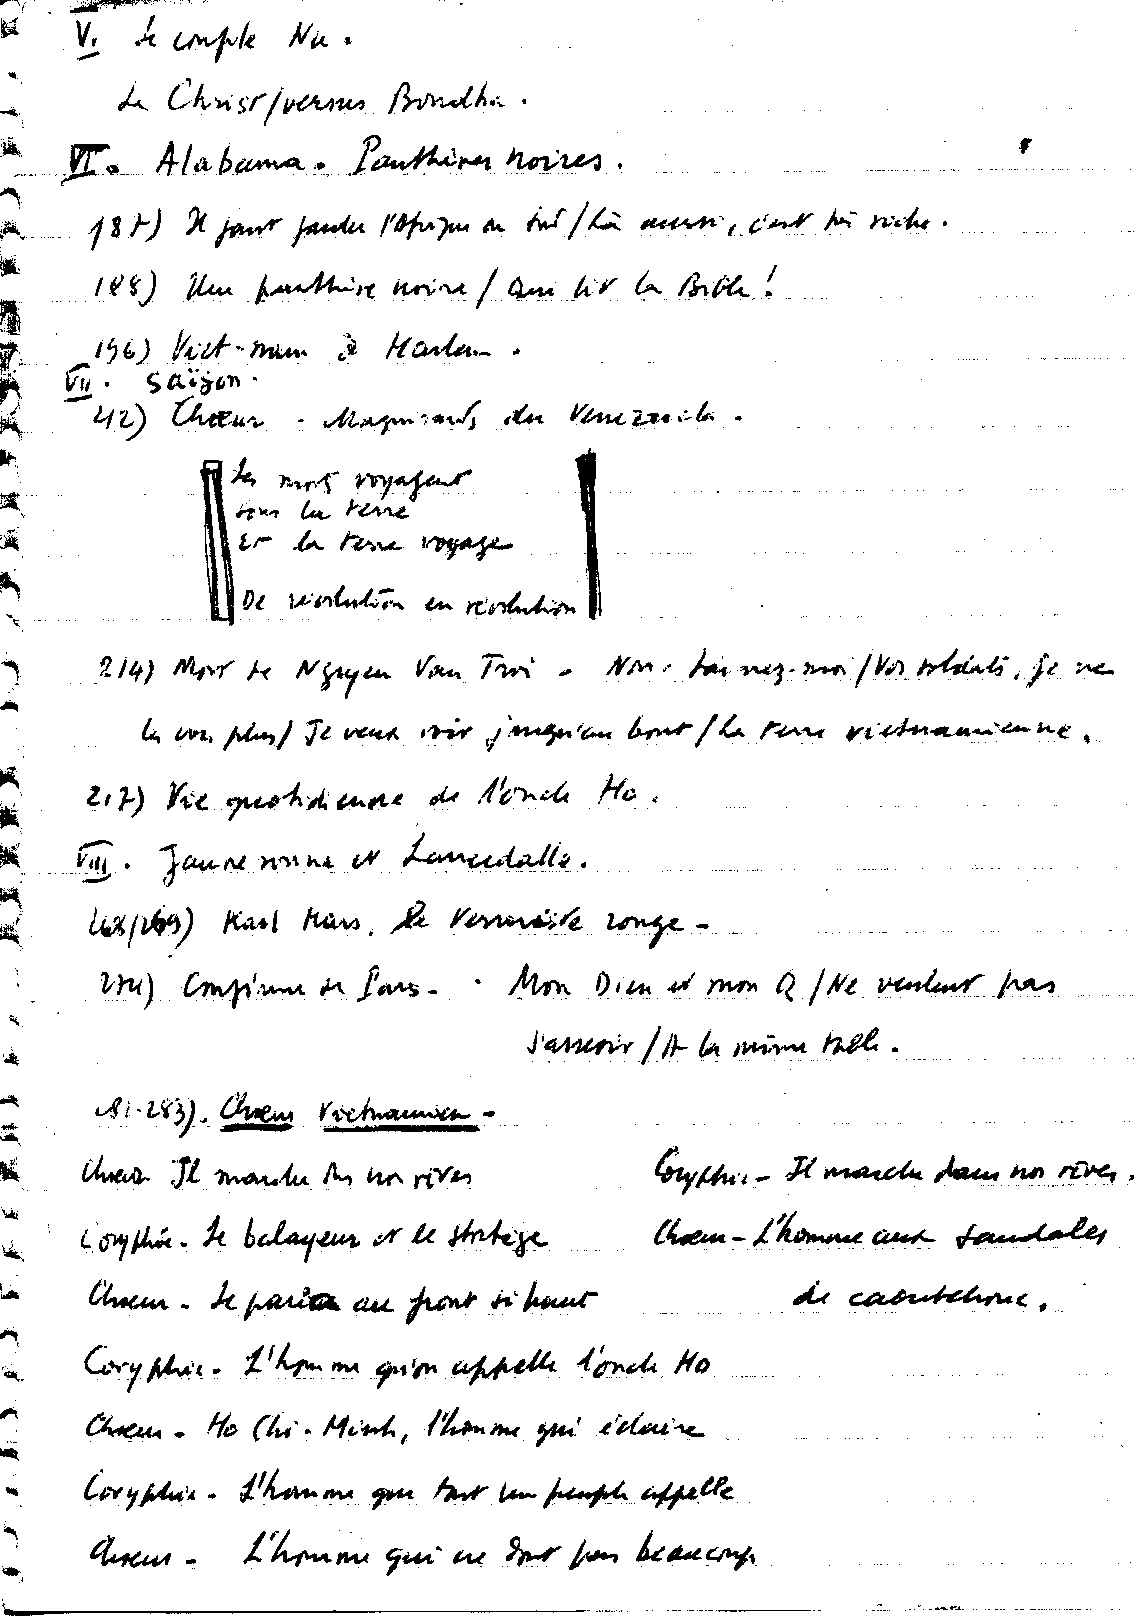 V. Le couple Nu.
Le Christ/versus Boudha.
VI. Alabama. Panthères noires.
187) Il faut garder l'Afrique du Sud/Là aussi, c'est très riche.
188) Une panthère noire/Qui lit la Bible!
196) Viet-nam à Harlem.
VII. Saïgon.
212) Chœur. Maquisards du Venezuela.
Les morts voyagent
sous la terre
Et la terre voyage
De révolution en révolution
214) Mort de Nguyen Van Troi - Non. Laissez-moi/Vos soldats, je ne
les vois plus/Je veux voir jusqu'au bout/La terre vietnamienne.
217) Vie quotidienne de l'oncle Ho.
VIII. Jaunesonne et Lancedalle.
268/269) Karl Mars, le terroriste rouge -
274) Confirme de Paris - Mon Dieu et mon Q/Ne veulent pas
s'asseoir/A la même table.
281-283). Chœur Vietnamien -
Chœur Il marche ds nos rêves
Coryphée - Le balayeur et le stratège
Chœur - Le paria au front si haut
Coryphée - L'homme qu'on appelle l'oncle Ho
Chœur - Ho Chi-Minh, l'homme qui éclaire
Coryphée - L'homme que tout un peuple appelle
Chœur - L'homme qui ne dort pas beaucoup
Coryphée - Il marche dans nos rêves.
Chœur - L'homme aux sandales
de caoutchouc.